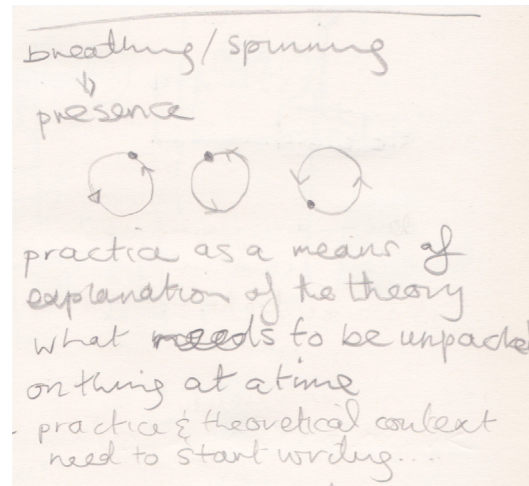 breathing/spinning
presence
practice as a means of
explanation of the theory
what needs to be unpacked
on thing at a time
practice & theoretical context
need to start writing....